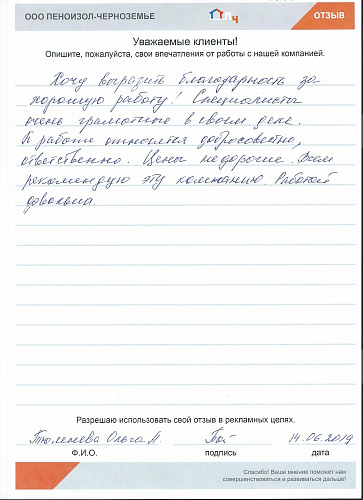 ООО ПЕНОИЗОЛ-ЧЕРНОЗЕМЬЕ
ПЧ
ОТЗЫВ
Уважаемые клиенты!
Опишите, пожалуйста, свои впечатления от работы с нашей компанией.
Хочу выразить благодарность за
хорошую работу! Специалисты
очень грамотные в своем деле.
К работе относятся добросовестно,
ответственно. Цены недорогие. Всем
рекомендую эту компанию. Работой
довольна
Разрешаю использовать свой отзыв в рекламных целях.
Тюленева Ольга 14.06.2019
Ф.И.О. подпись дата
Спасибо! Ваше мнение поможет нам
совершенствоваться и развиваться дальше!